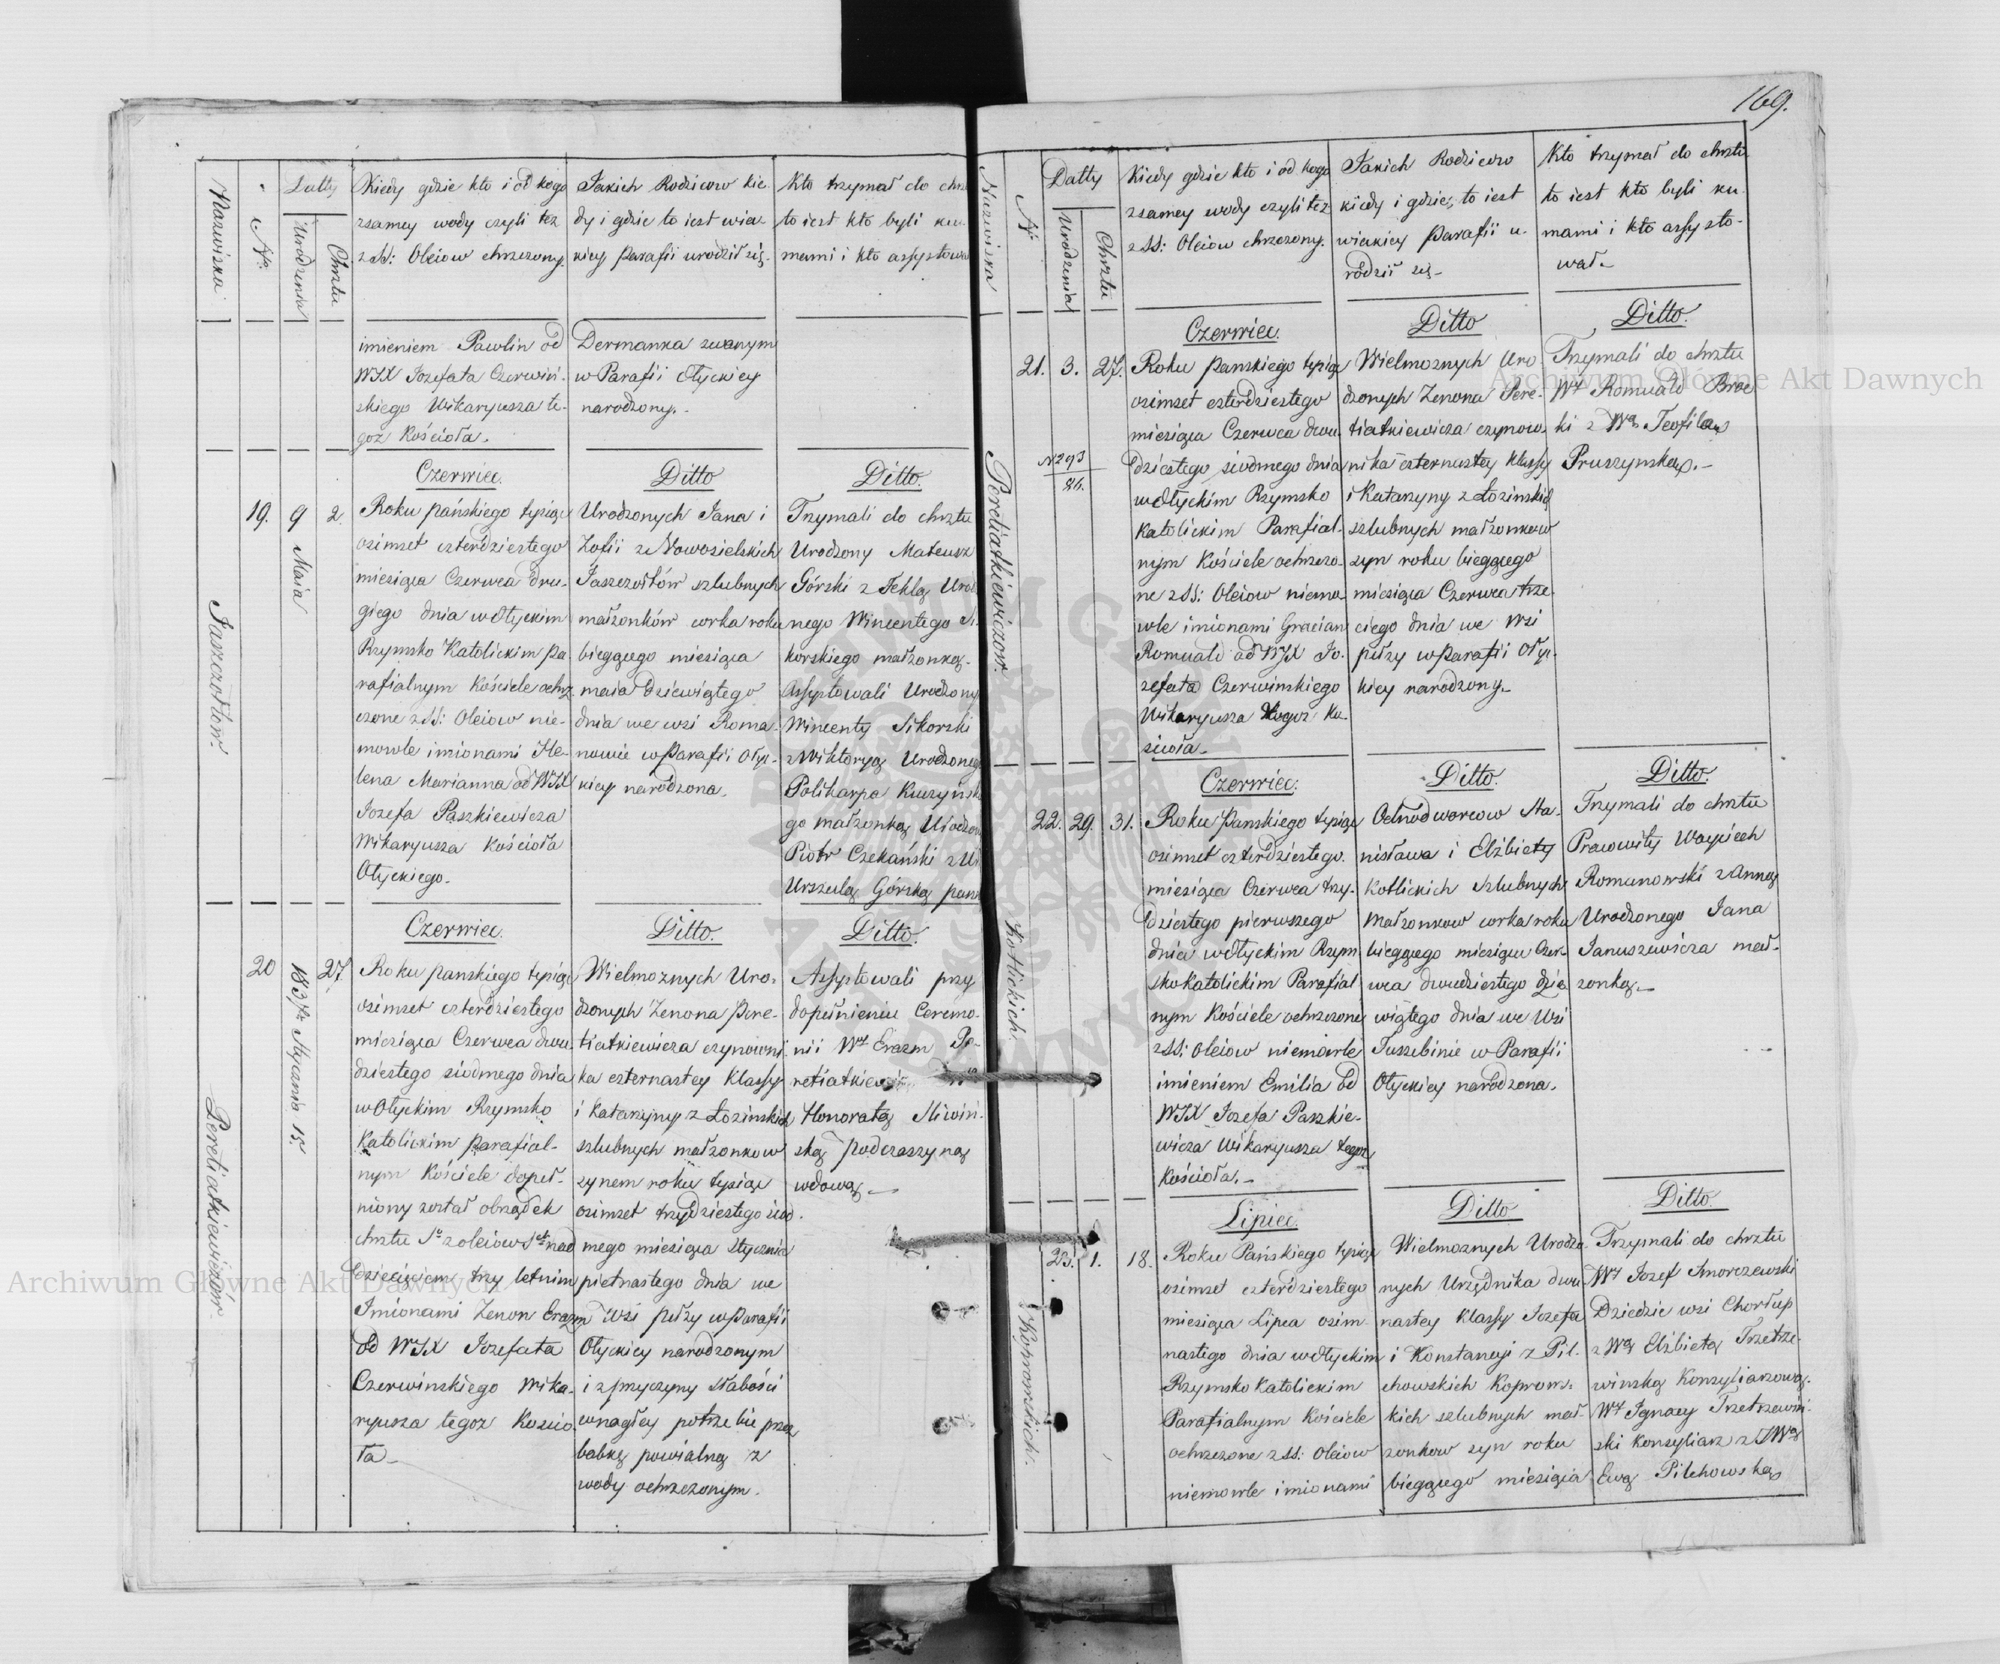 169.
Nazwiska
№
Datty
Urodzenia
Chrztu
Kiedy gdzie kto i od kogo
z samey wody czyli też
z SS: Oleiow chrzczony.
Jakich Rodzicow kie-
dy i gdzie to iest wia-
kiey Parafii urodził się.
Kto trzymał do chrz
to iest kto byli ku-
mami i kto assystowa
imieniem Pawlin od
WJX Jozefata Czerwiń-
skiego Wikaryusza te-
goż Kościoła.
Dermanka zwanym
w Parafii Ołyckiey
narodzony.
Jaszczołtow.
19.
9 Maia
2.
Czerwiec.
Roku pańskiego tysiąc
osimset czterdziestego
miesiąca Czerwca dru-
giego dnia w Ołyckim
Rzymsko Katolickim pa-
rafialnym Kościele ochrz
czone z SS: Oleiow nie-
mowle imionami He-
lena Marianna od WJX
Jozefa Paszkiewicza
Wikaryusza Kościoła
Ołyckiego.
Ditto
Urodzonych Jana i
Zofii z Nowosielskich
Jaszczołtów szlubnych
małżonków corka roku
bieggcego miesiąca
maia dziewiątego
dnia we wsi Roma-
nowie w Parafii Ołyc-
kiey narodzona.
Ditto.
Trzymali do chrztu
Urodzony Mateusz
Górski z Teklą Uro
nego Wincentego Si-
korskiego małżonką.
Assystowali Urodzony
Wincenty Sikorski
z Wiktoryą Urodzoneg
Polikarpa Kuczyńsk
go małżonką Urodzon
Piotr Czekański z U
Urszulą Górską pann
Peretiatkiewiczow
20
1837 Stycznia 15.
27.
Czerwiec.
Roku panskiego tysiąc
osimset czterdziestego
miesiąca Czerwca dwu-
dziestego siodmego dnia
w Ołyckim Rzymsko
Katolickim parafial-
nym Kościele dopeł-
niony został obrządek
chrztu S° z oleiow Sch nad
dziecięciem trzy letnim
Imionami Zenon Erazm
od WJX Jozefata
Czerwinskiego Wika-
ryusza tegoz Koscio
ła
Ditto.
Wielmoznych Uro-
dzonych Zenona Pere-
tiatkiewicza czynowni-
ka czternastey Klassy
i Katarzyny z Łozinskich
szlubnych małzonkow
synem roku tysiąc
osimset trzydziestego siod-
mego miesiąca stycznia
piętnastego dnia we
wsi pełzy w Parafii
Ołyckiey narodzonym
i z przyczyny słabości
w nagłey potrzebie przez
babkę powialną z
wody ochrzczonym.
Ditto.
Assystowali przy
dopełnieniu Ceremo-
nii Wy Erazm Pe-
retiatkiewicz
Honoratą Sliwiń-
ską podczaszyną
wdową
Nazwiska
№
Datty
Urodzenia
Chrztu
Kiedy gdzie kto i od kogo
z samey wody czyli tez
z SS: Oleiow chrzczony.
Jakich Rodzicow
kiedy i gdzie, to iest
wiakiey Parafii u-
rodził się
Kto trzymał do chrztu
to iest kto byli ku-
mami i kto assysto-
wał
Peretiatkiewiczow
21.
3.
27.
N293
86.
Czerwiec.
Roku panskiego tysiąc
osimset czterdziestego
miesiąca Czerwca dwu-
dziestego siodmego dnia
w Ołyckim Rzymsko
Katolickim Parafial-
nym Kościele ochrzczo-
ne z SS: Oleiow niemo-
wle imionami Gracian
Romuald od WJX Jo-
zefata Czerwinskiego
Wikaryusza tegoz Ko-
scioła
Ditto
Wielmoznych Uro
dzonych Zenona Pere-
tiatkiewicza czynow-
nika czternastey Klassy
i Katarzyny z Łozinskich
szlubnych małzonkow
syn roku bieggcego
miesiąca Czerwca trze-
ciego dnia we Wsi
pełzy w Parafii Ołyc-
kiey narodzony
Ditto.
Trzymali do chrztu
Wy Romuald Broc
ki z Wą Teofilą
Pruszynską.
Kotlickich.
22.
29.
31.
Czerwiec.
Roku Panskiego tysiąc
osimset czterdziestego
miesiąca Czerwca trzy-
dziestego pierwszego
dnia w Ołyckim Rzym
sko Katolickim Parafial
nym Kościele ochrzczone
z SS: Oleiow niemowle
imieniem Emilia od
WJX Jozefa Paszkie-
wicza Wikaryusza tegoz
Kościoła.
Ditto.
Odnodworcow Sta-
nisława i Elżbiety
Kotlickich Szlubnych
Małzonkow corka roku
bieggcego miesiąca Czer-
wca dwudziestego dzie
wiątego dnia we Wsi
Tuszebinie w Parafii
Ołyckiey narodzona.
Ditto.
Trzymali do chrztu
Prawowity Woyciech
Romanowski z Anną
Urodzonego Jana
Januszewicza mał-
zonką
Koprowskich.
23.
1.
18.
Lipiec.
Roku Pańskiego tysiąc
osimset czterdziestego
miesiąca Lipca osim-
nastego dnia w Ołyckim
Rzymsko Katolickim
Parafialnym Kościele
ochrzczone z SS: Oleiow
niemowle imionami
Ditto.
Wielmoznych Urodzo-
nych Urzędnika dwu
nastey Klassy Jozefa
i Konstancyi z Pil-
chowskich Koprows-
kich szlubnych mał-
zonkow syn roku
bieggcego miesiąca
Ditto.
Trzymali do chrztu
Wy Jozef Smorczewski
Dziedzic wsi Chorłup
z Wą Elżbietą Trzetrze-
winską Konsyliarzową.
Wy Ignacy Trzetrzewin-
ski Konsyliarz z JWą
Ewą Pilchowską
Archiwum Główne Akt Dawnych
Archiwum Główne Akt Dawnych